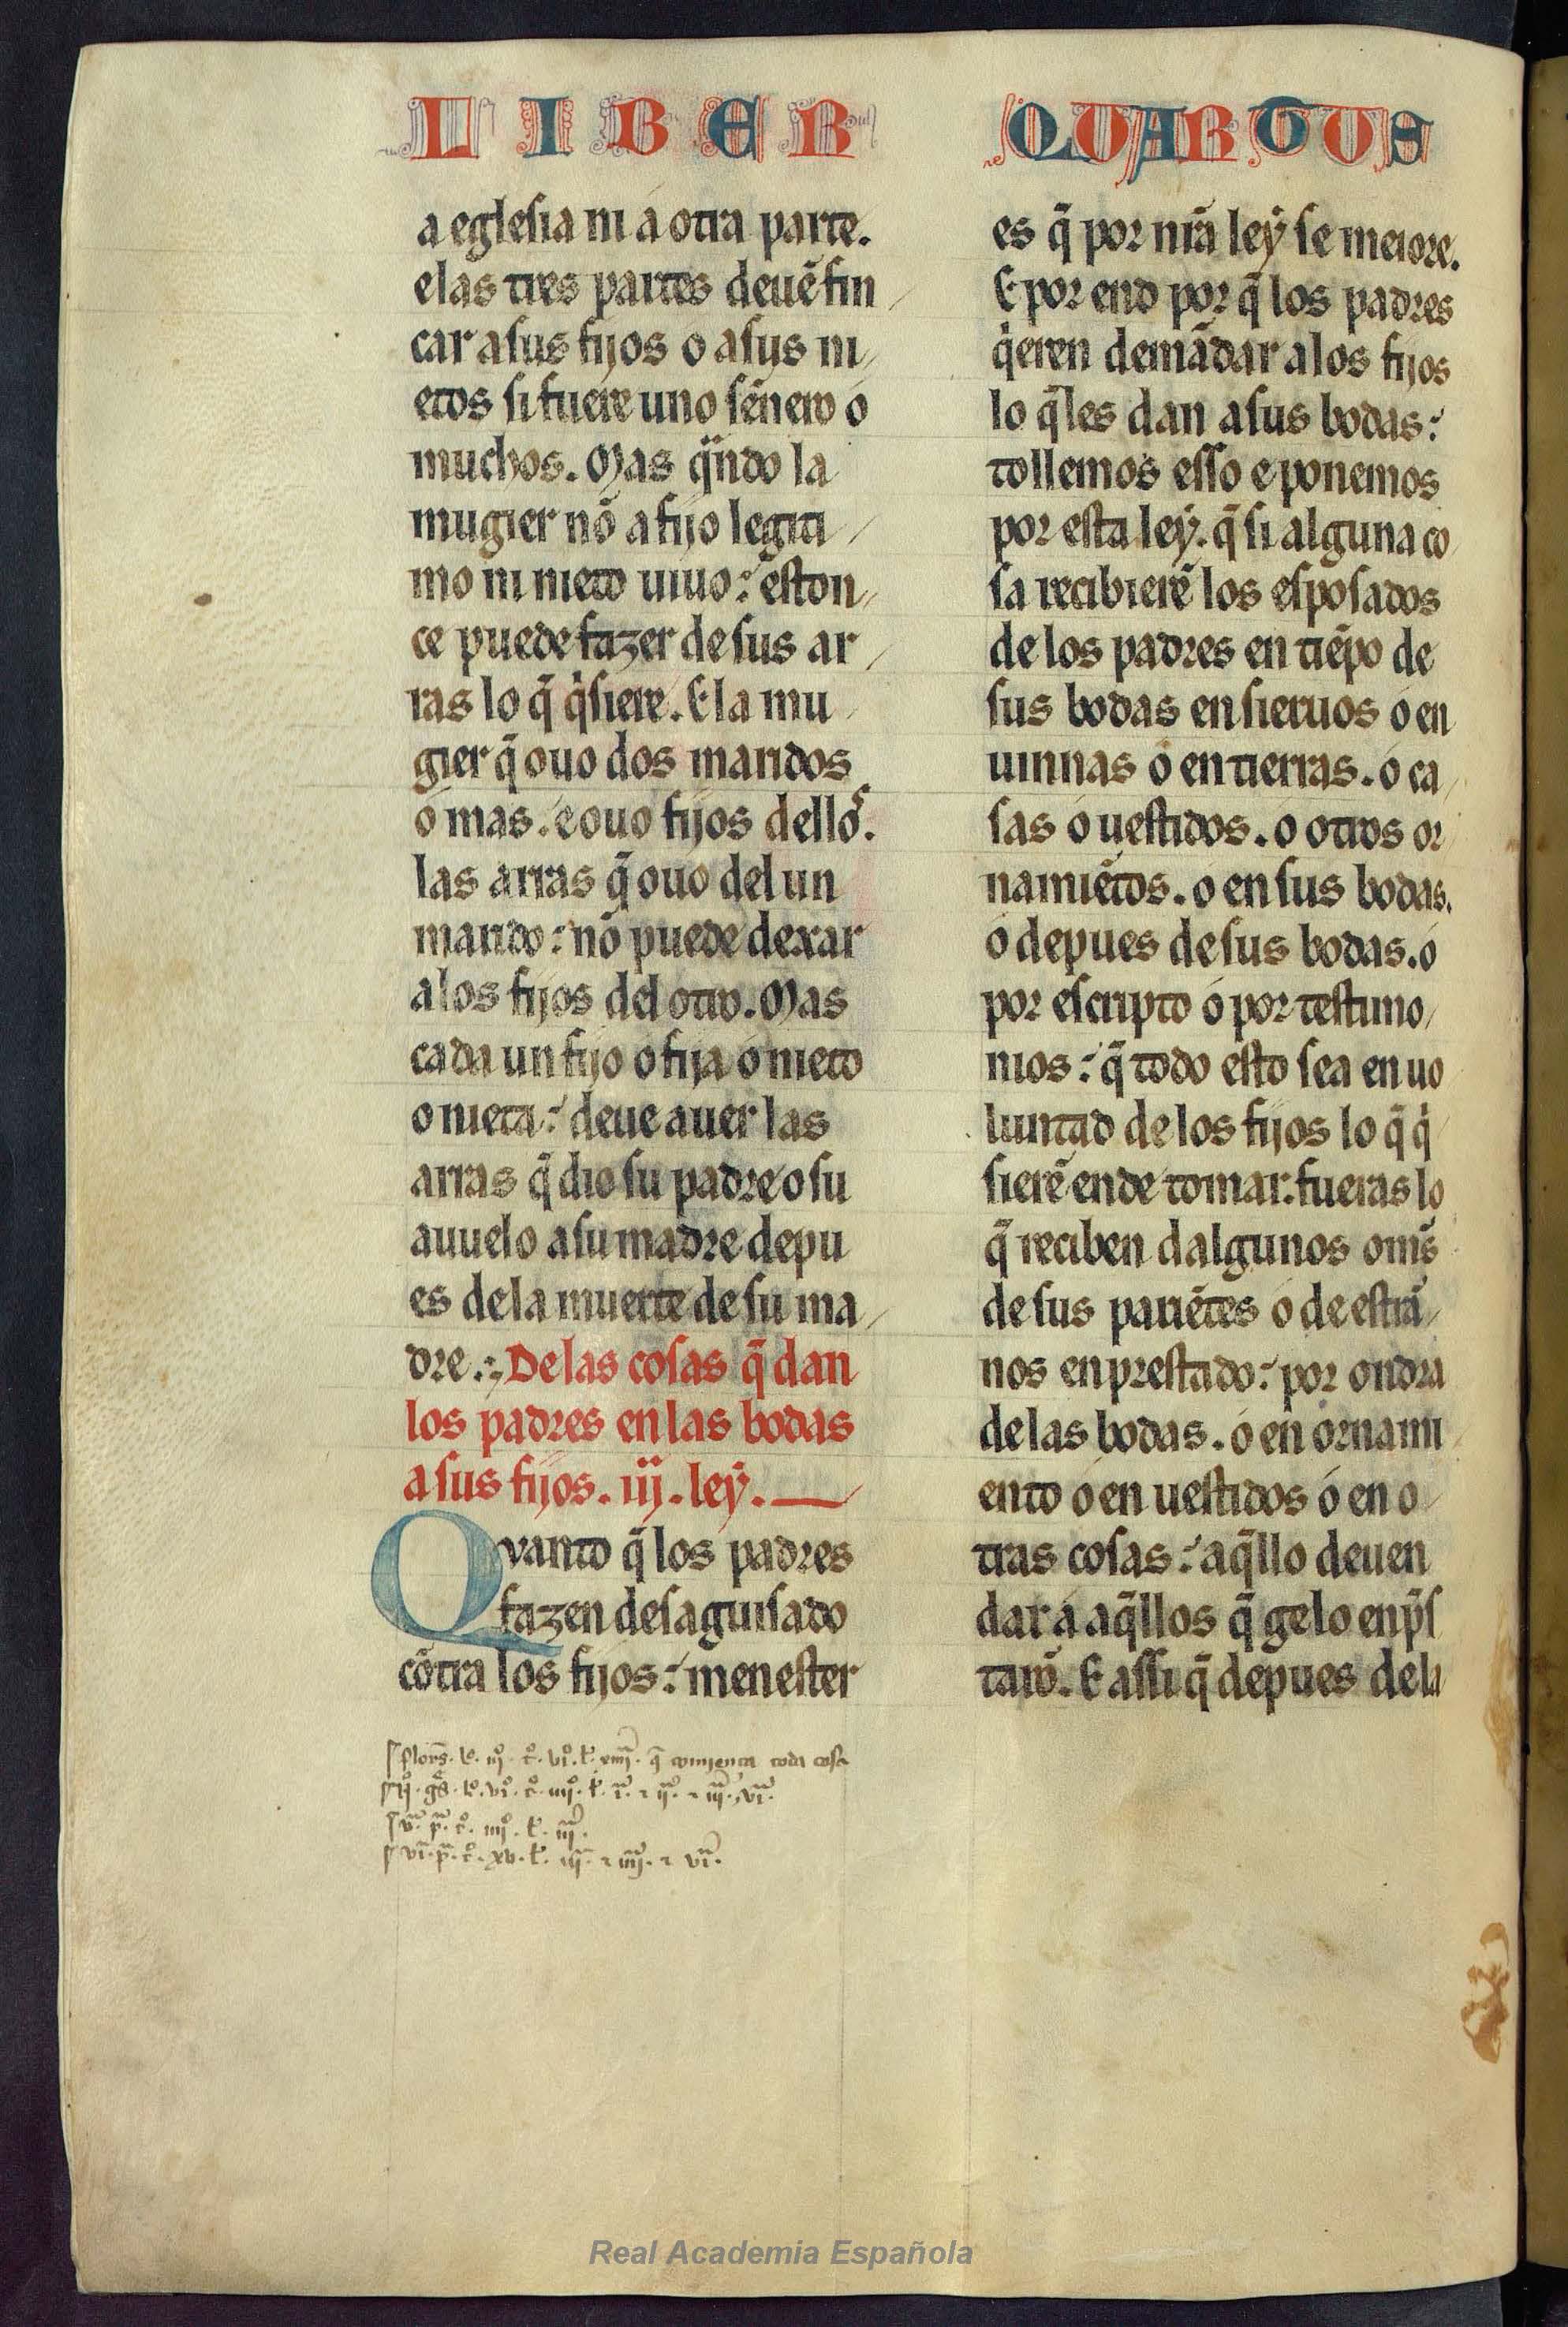 LIBER QUARTUS
a eglesia ni a otra parte.
e las tres partes deuẽ fin
car a sus fijos o a sus ni
etos si fuere uno sẽnero o
muchos. Mas qͣndo la
mugier nõ a fijo legiti
mo ni nieto uiuo: eston
ce puede fazer de sus ar
ras lo q̃ q̇siere. E la mu
gier q̃ ouo dos maridos
o mas: e ouo fijos dellos.
las arras q̃ ouo del un
marido: nõ puede dexar
a los fijos del otro. Mas
cada un fijo o fija o nieto
o nieta: deue auer las
arras q̃ dio su padre o su
auuelo a su madre depu
es de la muerte de su ma
dre. De las cosas q̃ dan
los padres en las bodas
a sus fijos. iij. ley.
Qvanto q̃ los padres
fazen desaguisado
cõtra los fijos: menester
es q̃ por nr̃a ley se meiore.
E por end por q̃ los padres
q̇eren demãdar a los fijos
lo q̃ les dan a sus bodas:
tollemos esso e ponemos
por esta ley. q̃ si alguna co
sa recibierẽ los esposados
de los padres en tiẽpo de
sus bodas en sieruos o en
uinnas o en tierras. o ca
sas o uestidos. o otros or
namiẽtos. o en sus bodas.
o depues de sus bodas. o
por escripto o por testimo
nios: q̃ todo esto sea en uo
luntad de los fijos lo q̃ q̇
sierẽ ende tomar. fueras lo
q̃ reciben dalgunos om̃s
de sus pariẽtes o de estrã
nos enprestado: por ondra
de las bodas. o en ornami
ento o en uestidos o en o
tras cosas: aq̃llo deuen
dar a aq̃llos q̃ gelo enp̃s
tarõ. E assi q̃ depues de la
q̃ comiença toda cosa
Real Academia Española